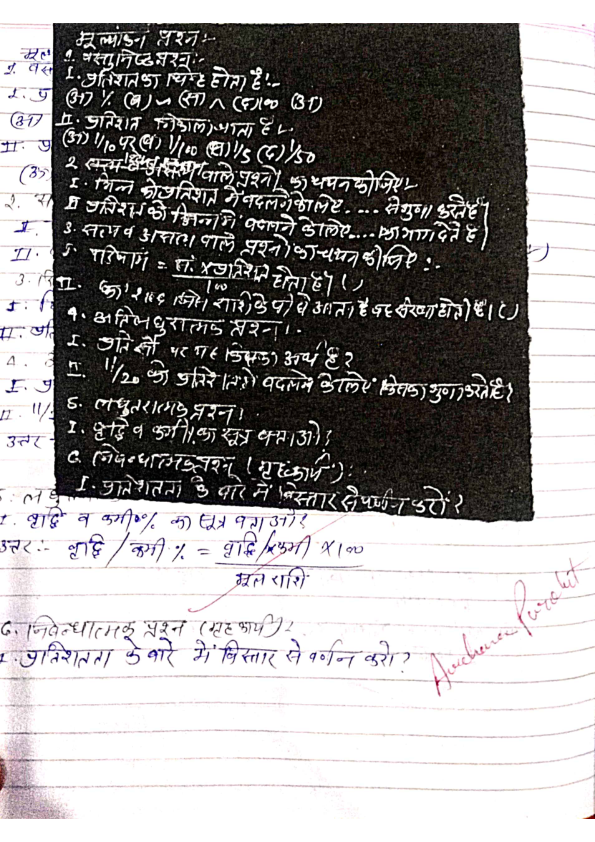 मूल्यांकन प्रश्न:-
1. वस्तुनिष्ठ प्रश्न:-
I. प्रतिशत का चिन्ह होता है:-
(अ) % (ब) ~ (स) ^ (द) ∞ (अ)
II. प्रतिशत निकाला जाता है:-
(अ) 1/10 पर (ब) 1/100 (स) 1/5 (द) 1/50
2. वाले प्रश्नों का चयन कीजिए:-
I. भिन्न को प्रतिशत में बदलने के लिए .... से गुणा करते हैं|
II. प्रतिशत को भिन्न में बदलने के लिए .... का भाग देते हैं|
3. सत्य व असत्य वाले प्रश्नों का चयन कीजिए:-
I. परिमाण = सं. x प्रतिशत / 100 होता है। ( )
II. 'का' शब्द जिस राशि के आता है वह संख्या होती है। ( )
4. अतिलघुरात्मक प्रश्न।-
I. प्रति सौ पर यह किसका अर्थ है?
II. 11/20 को प्रतिशत में बदलने के लिए किसका गुणा करते है?
5. लघुतरात्मक प्रश्न।
I. वृद्धि व कमी का सूत्र बताओ?
6. निबन्धात्मक प्रश्न (गृहकार्य):
I. प्रतिशतता के बारे में विस्तार से वर्णन करो?
I. वृद्धि व कमी % का सूत्र बताओ?
उत्तर:- वृद्धि / कमी % = वृद्धि / कमी x 100
मूल राशि
6. निबन्धात्मक प्रश्न (गृहकार्य):
I. प्रतिशतता के बारे में विस्तार से वर्णन करो?
Archana Purohit